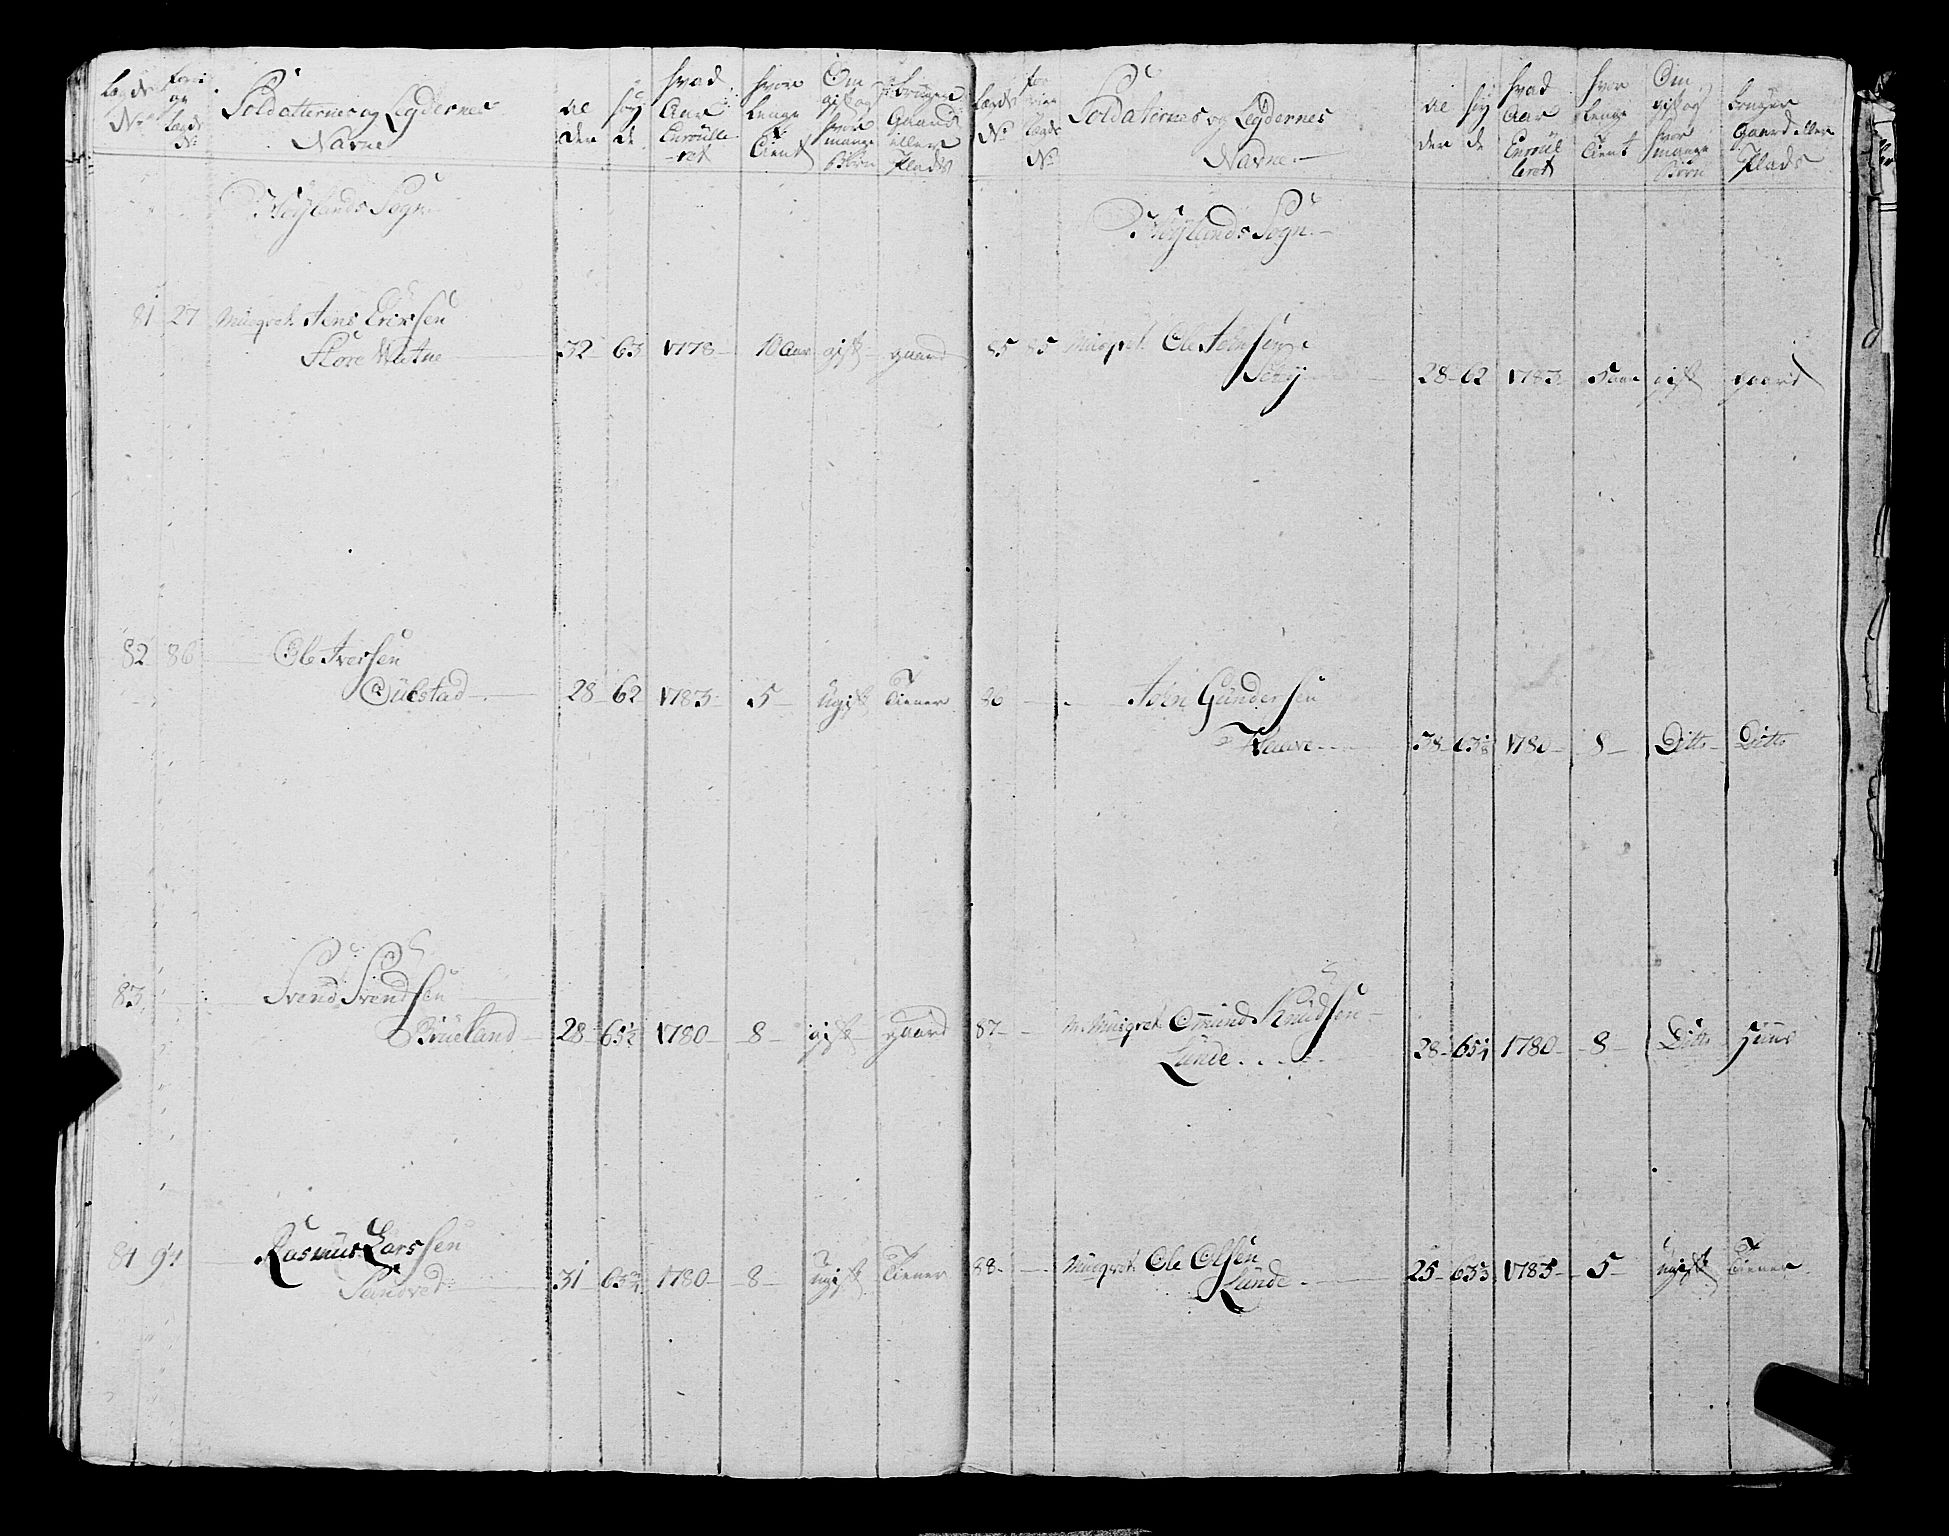 Lægds No
Forri ge Lægds No
Soldaternes og Legdernes Navne
Al der
Høy de
Hvad Aar Enroulle-ret
Hvor lenge Tient
Om gift og hvor mange Børn
bruger Gaard eller Plads
Høylands Sogn
81 27 Musqvet. Jens Ericksen
Store Watne 32 63 1778 10 Aar gift gaard
82 86 Ole Iversen
28 62 1783 5 ugift Tiener
83 Svend Svendsen
Brueland 28 65½ 1780 8 gift gaard
84 94 Rasmus Larssen
Sandved 31 63¾ 1780 8 ugift Tiener
Lægds No
For rige Lægds No
Soldaternes og Legdernes Navne
Al der
Høy de
Hvad Aar Enroul leret
Hvor lenge Tient
Om gift og hvor mange Børn
bruger Gaard eller Plads
Høylands Sogn
85 85 Musqvet. Ole
28 62 1783 5 aar gift gaard
86 John Gundersen
38 1780 8 Ditto Ditto
87 Musqvet. Omund Knudsen
Lunde 28 65¼ 1780 8 Ditto Huus
88 Musqvet. Ole Olsen
Lunde 25 1783 5 ugift Tiener